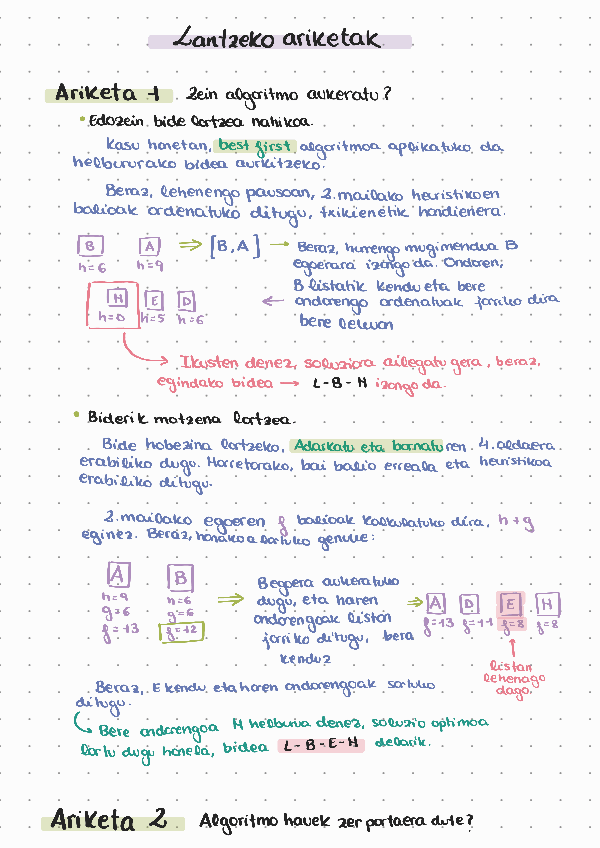 Lantzeko ariketak
Ariketa 1. Zein algoritmo aukeratu?
• Edozein bide lortzea nahikoa.
Kasu honetan, best first algoritmoa aplikatuko da
helbururako bidea aurkitzeko.
Beraz, lehenengo pausoan, 2. mailako heuristikoen
balioak ordenatuko ditugu, txikienetik handienera.
B A ⇒ [B, A] →
h=6 h=9
Beraz, hurrengo mugimendua B
egoerara izango da. Ondoren,
B listatik kendu eta bere
ondorengo ordenatuak jarriko dira
bere lekuan
←
H E D
h=0 h=5 h=6
Ikusten denez, soluziora ailegatu gera, beraz,
egindako bidea → L-B-H izango da.
• Biderik motzena lortzea.
Bide hobezina lortzeko, Adarkatu eta bornaturen 4. aldaera
erabiliko dugu. Horretarako, bai balio erreala eta heuristikoa
erabiliko ditugu.
2. mailako egoeren f balioak kalkulatuko dira, h+g
eginez. Beraz, honakoa lortuko genuke:
A B
h=9 h=6
g=6 g=6
f=13 f=12
⇒
B egoera aukeratuko
dugu, eta haren
ondorengoak listan
jarriko ditugu, bera
kenduz
⇒ A D E H
f=13 f=11 f=8 f=8
listan
lehenago
dago.
Beraz, E kendu eta haren ondorengoak sartuko
ditugu.
Bere ondorengoa H helburua denez, soluzio optimoa
lortu dugu honela, bidea L-B-E-H delarik.
Ariketa 2 Algoritmo hauek zer portaera dute?